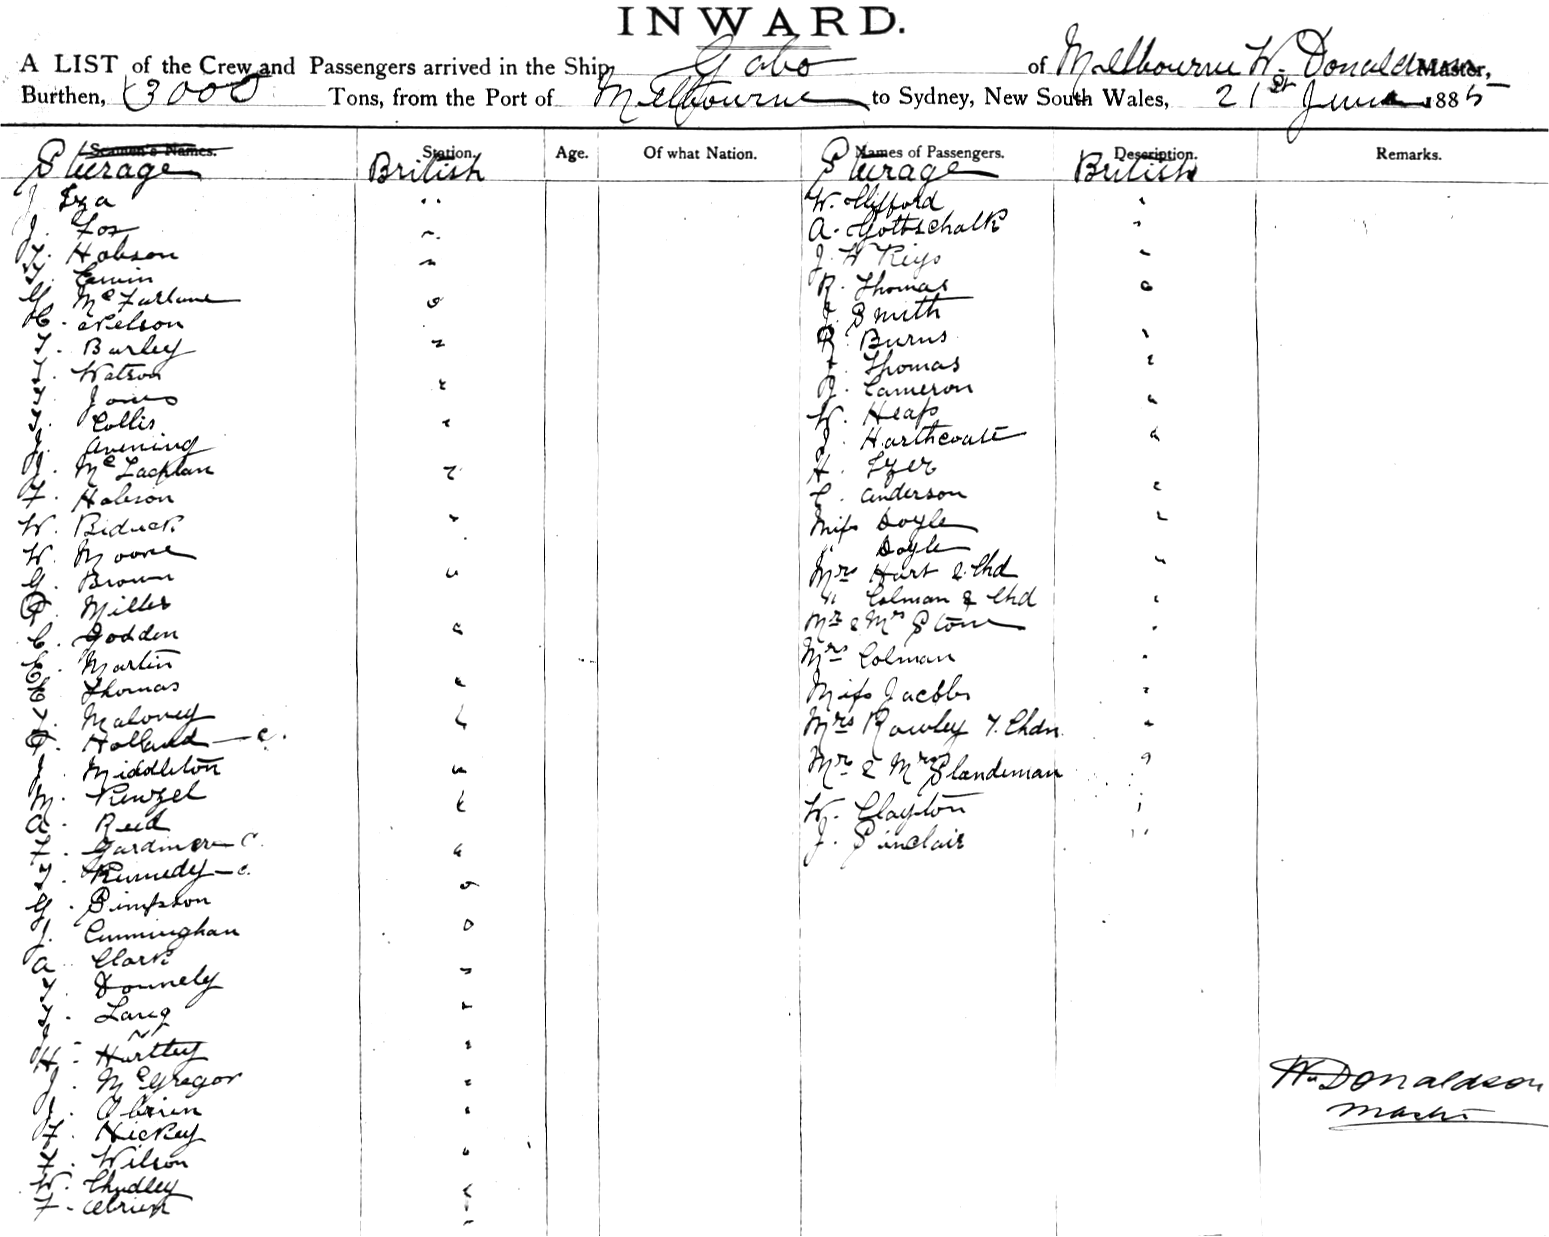 INWARD.
A LIST of the Crew and Passengers arrived in the Ship, Gabo of Melbourne W. Donaldson Master,
Burthen, 3000 Tons, from the Port of Melbourne to Sydney, New South Wales, 21st June 1885
Seamen's Names. Station. Age. Of what Nation. Names of Passengers. Description. Remarks.
Steerage British Steerage British
J
J.
Hobson
McFarlane
H. Nelson
Burley
Watson
Jones
Collis
Avening
McLachlan
F. Hobson
W.
W. Moore
G. Brown
Miller
C. Godden
E. Martin
Thomas
Maloney
Holland — c.
Middleton
M.
A. Reid
F. Gardiner — C.
Kennedy — c.
G. Simpson
J. Cunningham
A. Clark
Donnely
Lang
H. Hartley
J. McGregor
J. Obrien
F. Hickey
Wilson
W. Chudley
F. Obrien
W. Clifford
A. Gottschalk
J. W
R. Thomas
J. Smith
R. Burns
Thomas
Cameron
W. Heaps
J. Harthcoate
H.
C. Anderson
Miss Doyle
" Doyle
Mrs Hart & Chd
" Colman & Chd
Mr & Mrs Stone
Mrs Colman
Miss Jacobs
Mrs Rowley 7. Chdn
Mr & Mrs Slandeman
W. Clayton
J. Sinclair
Wm Donaldson
Master